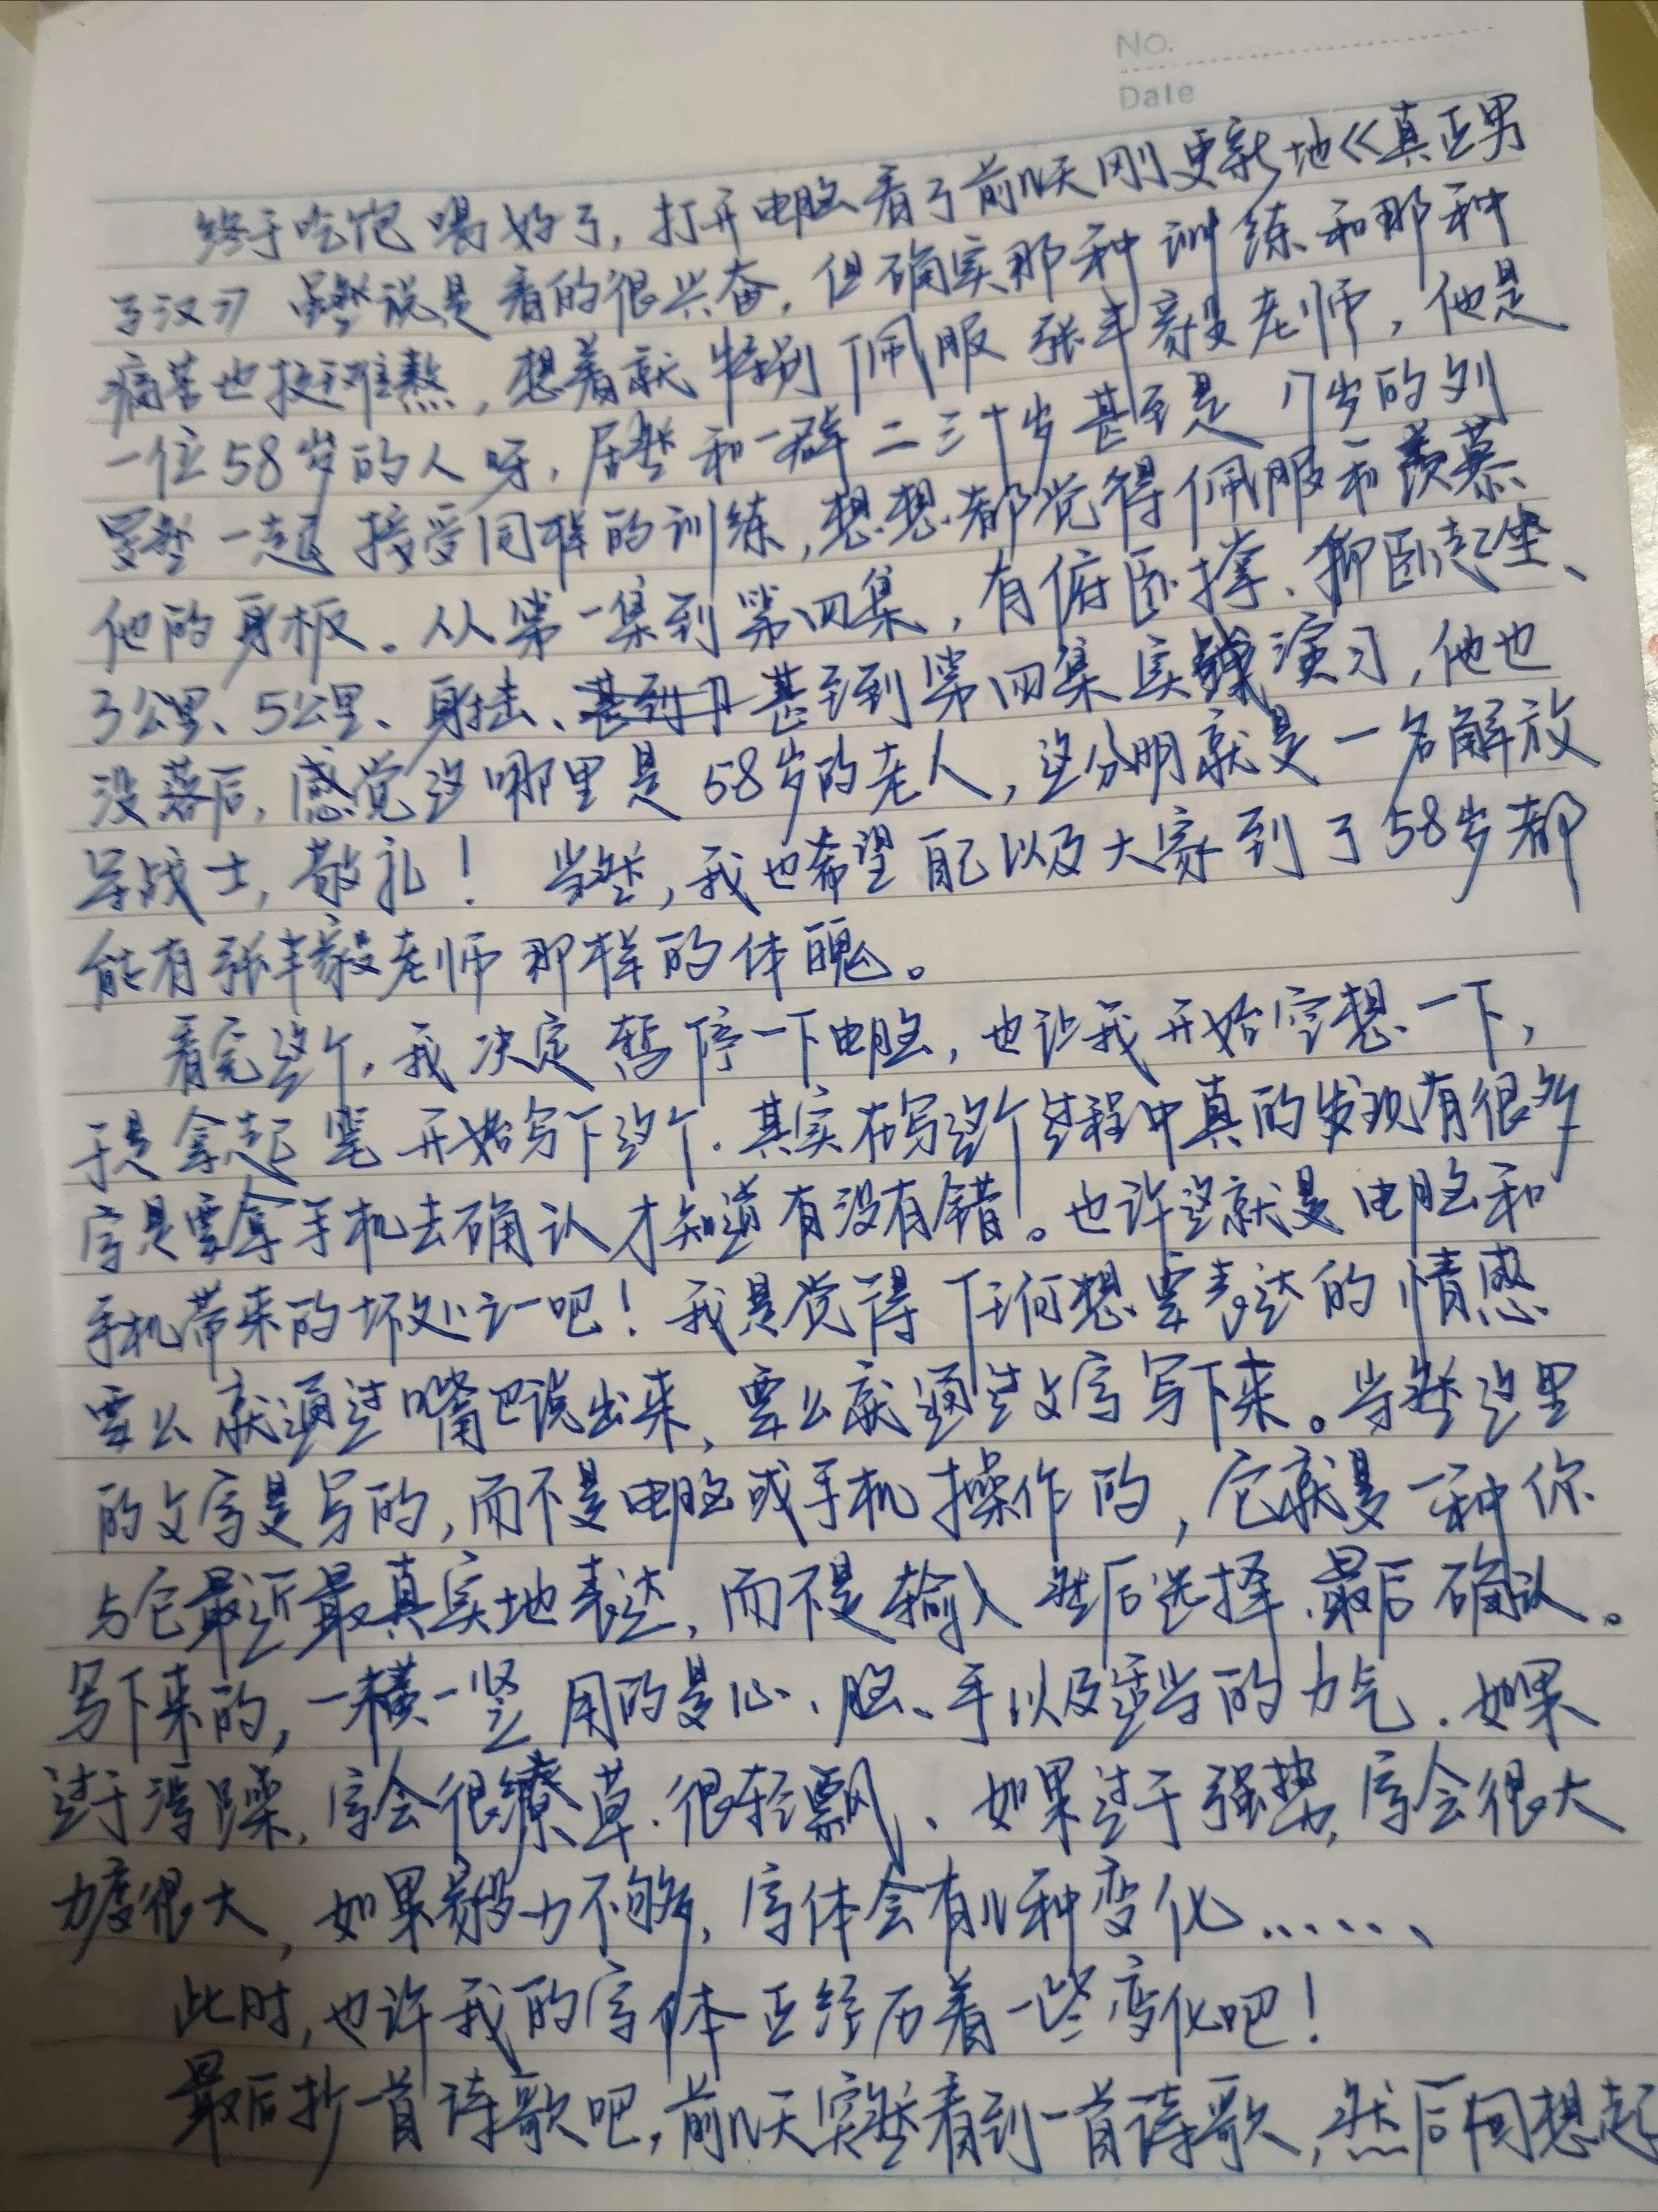 NO.
Date
终于吃饱喝好了，打开电脑看了前几天刚更新地《真正男
子汉》虽然说是看的很兴奋，但确实那种训练和那种
痛苦也挺难熬，想着就特别佩服张丰毅老师，他是
一位58岁的人呀，居然和一群二三十岁甚至是八岁的刘
昊然一起接受同样的训练，想想都觉得佩服和羡慕
他的身板。从第一集到第四集，有俯卧撑、仰卧起坐、
3公里、5公里、射击、甚至到第四集实战演习，他也
没落后，感觉这哪里是58岁的老人，这分明就是一名解放
军战士，敬礼！当然，我也希望自己以及大家到了58岁都
能有张丰毅老师那样的体魄。
看完这个，我决定暂停一下电脑，也让我开始空想一下，
于是拿起笔开始写下这个．其实在写这个过程中真的发现有很多
字是要拿手机去确认才知道有没有错。也许这就是电脑和
手机带来的坏处之一吧！我是觉得任何想要表达的情感
要么就通过嘴巴说出来，要么就通过文字写下来。当然这里
的文字是写的，而不是电脑或手机操作的，它就是一种你
与它最近最真实地表达，而不是输入然后选择最后确认。
写下来的，一横一竖用的是心、脑、手以及适当的力气．如果
过于浮躁，字会很缭草．很轻飘、如果过于强势，字会很大
力度很大，如果毅力不够，字体会有几种变化……
此时，也许我的字体正经历着一些变化吧！
最后抄一首诗歌吧，前几天突然看到一首诗歌，然后回想起